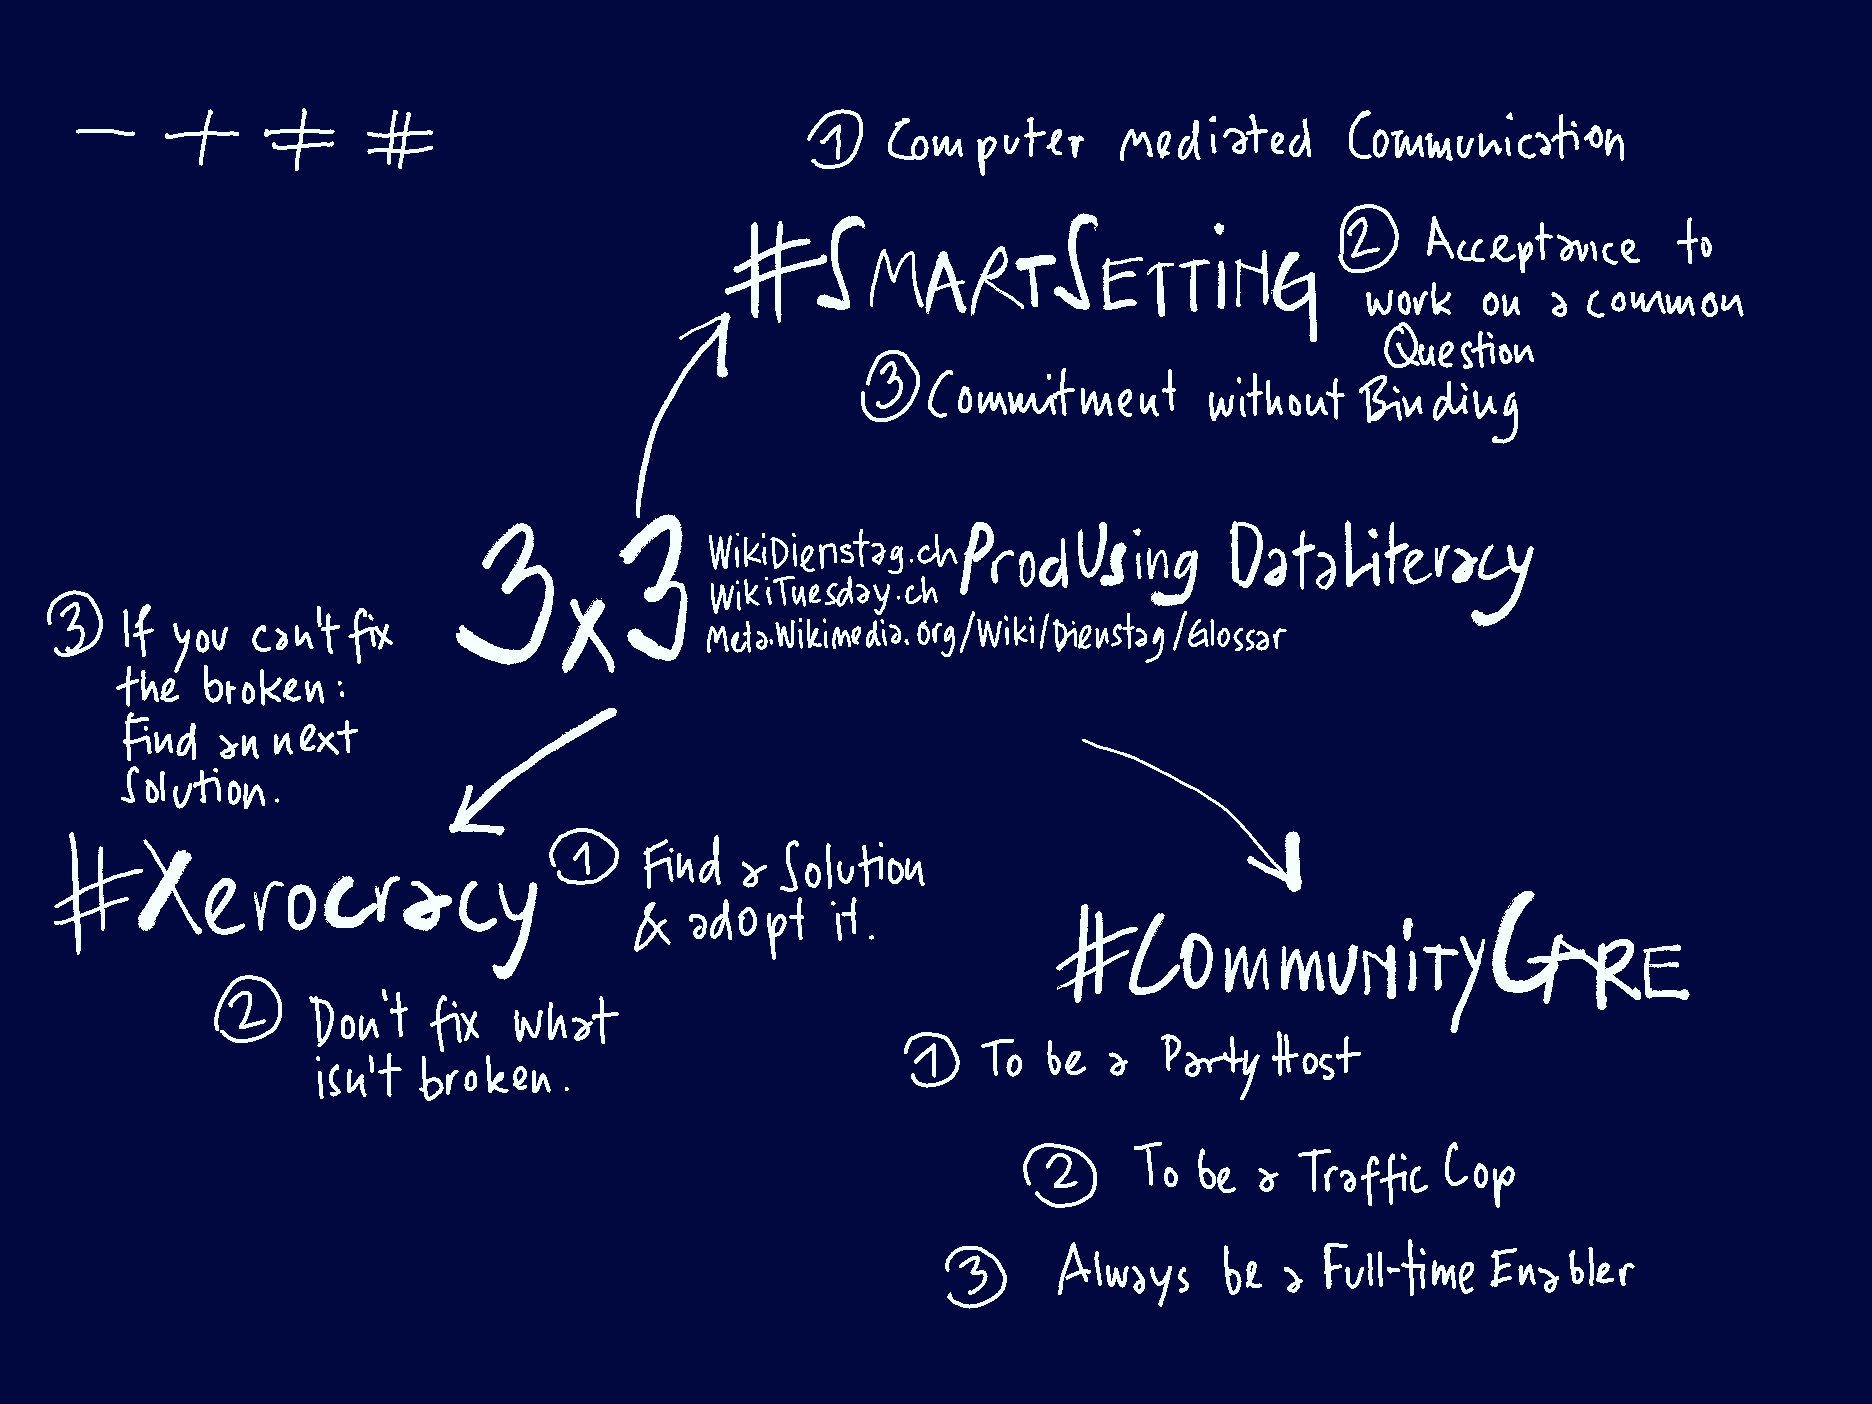 − + ≠ #
① Computer mediated Communication
#SmartSetting
② Acceptance to
work on a common
Question
③ Commitment without Binding
3x3
WikiDienstag.ch
WikiTuesday.ch
Meta.Wikimedia.org/Wiki/Dienstag/Glossar
ProdUsing DataLiteracy
③ If you can't fix
the broken:
Find an next
Solution.
#Xerocracy
① Find a Solution
& adopt it.
② Don't fix what
isn't broken.
#CommunityCare
① To be a Party Host
② To be a Traffic Cop
③ Always be a Full-time Enabler